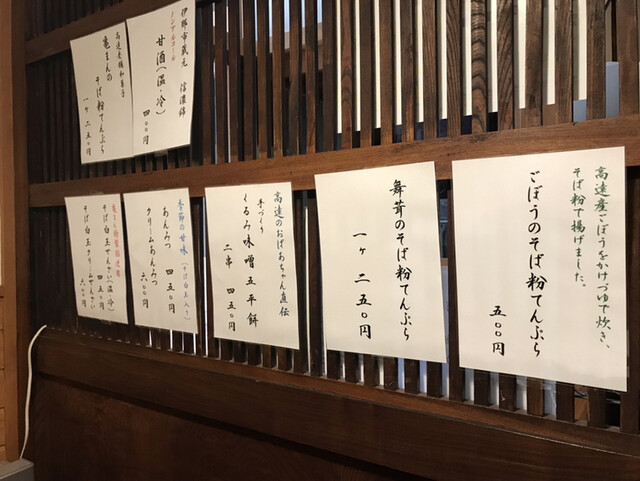 伊那市蔵元 信濃錦
ノンアルコール
甘酒(温・冷)
四〇〇円
高遠老舗和菓子
亀まんの
そば粉てんぷら
一ヶ 二五〇円
高遠産ごぼうをかけづゆで炊き、
そば粉で揚げました。
ごぼうのそば粉てんぷら
五〇〇円
舞茸のそば粉てんぷら
一ヶ 二五〇円
高遠のおばあちゃん直伝
手づくり
くるみ味噌五平餅
二串 四五〇円
季節の甘味(そば白玉入り)
あんみつ 四五〇円
クリームあんみつ 六〇〇円
そば白玉ぜんざい(温・冷) 四五〇円
そば白玉クリームぜんざい 六〇〇円